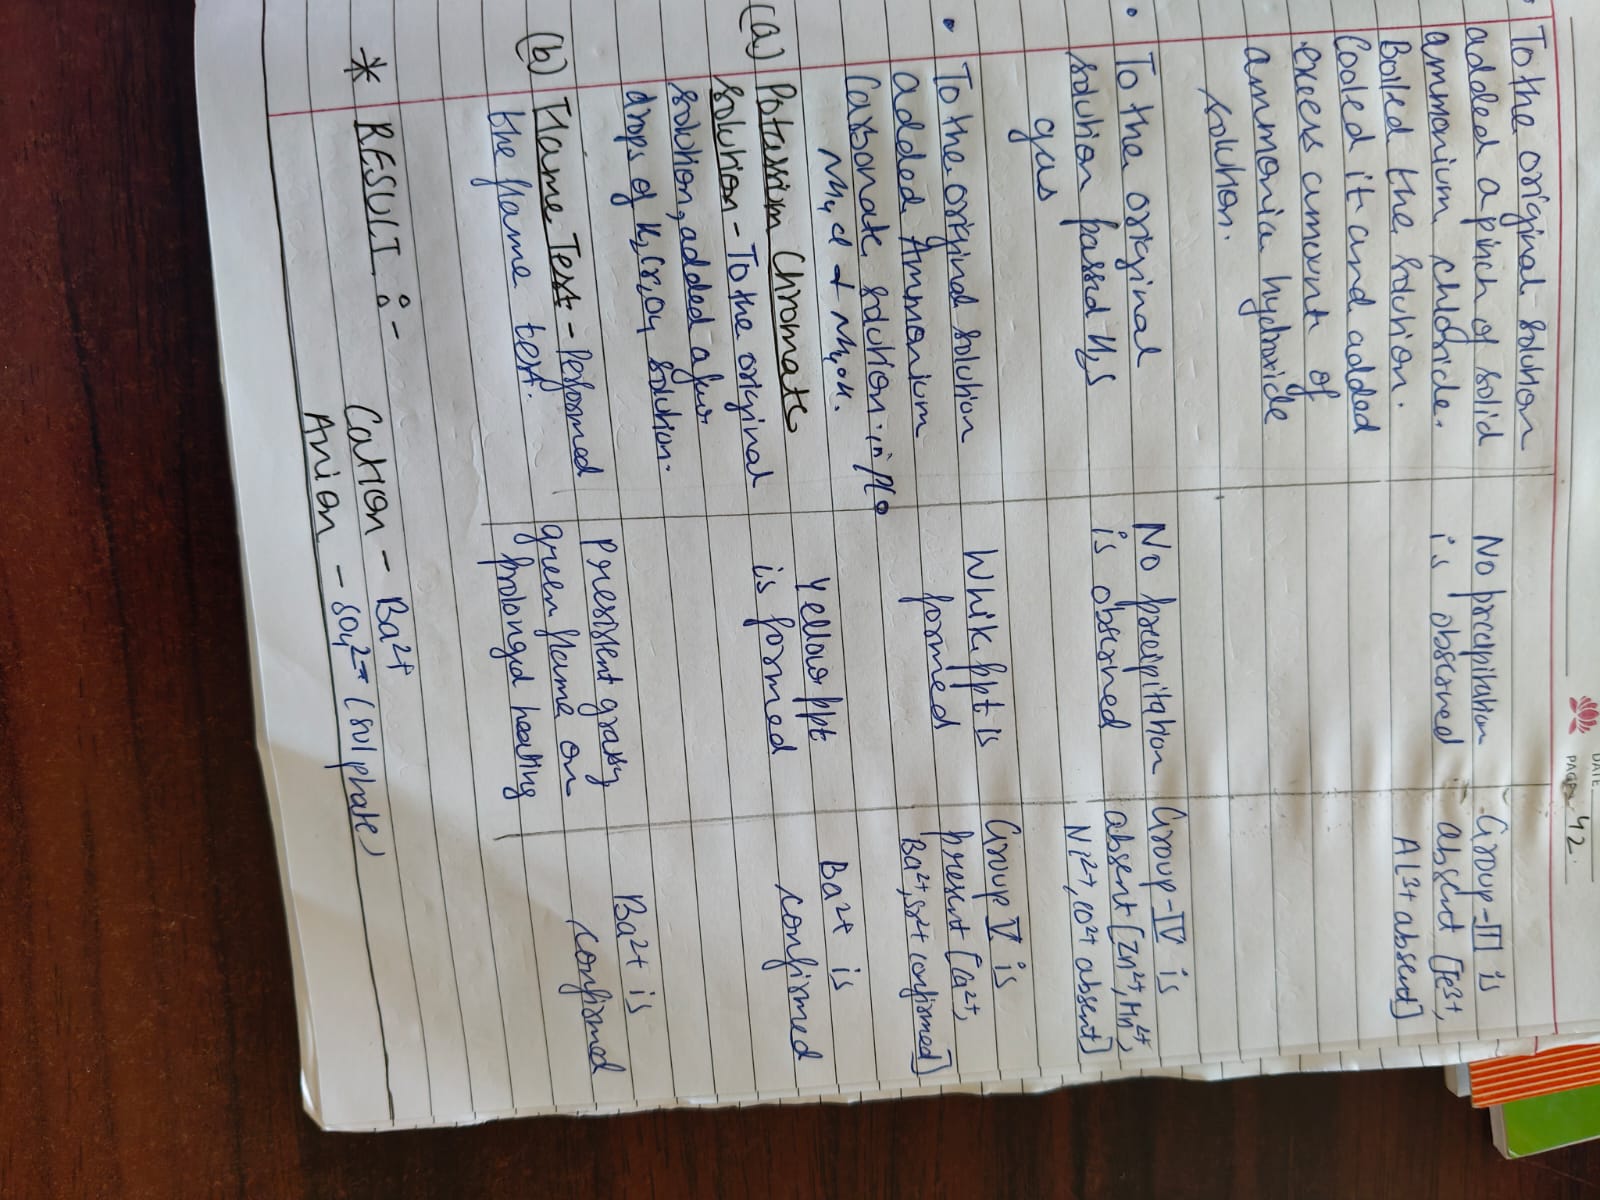 DATE
PAGE 42
To the original solution
added a pinch of solid
ammonium chloride.
Boiled the solution.
Cooled it and added
excess amount of
ammonia hydroxide
solution.
No precipitation
is observed
Group-III is
absent [Fe3+,
Al3+ absent]
• To the original
solution passed H2S
gas
No precipitation
is observed
Group-IV is
absent [Zn2+, Mn2+,
Ni2+, CO2+ absent]
• To the original solution
added Ammonium
Carbonate solution. in p/o
NH4Cl + NH4OH.
White ppt is
formed
Group V is
present [Ca2+,
Ba2+, Sr2+ confirmed]
(a) Potassium Chromate
solution - To the original
solution, added a few
drops of K2Cr2O4 solution.
Yellow ppt
is formed
Ba2+ is
confirmed
(b) Flame Test - Performed
the flame test.
Presistent grassy
green flame on
prolonged heating
Ba2+ is
confirmed
* RESULT :-
Cation - Ba2+
Anion - SO4 2- (sulphate)